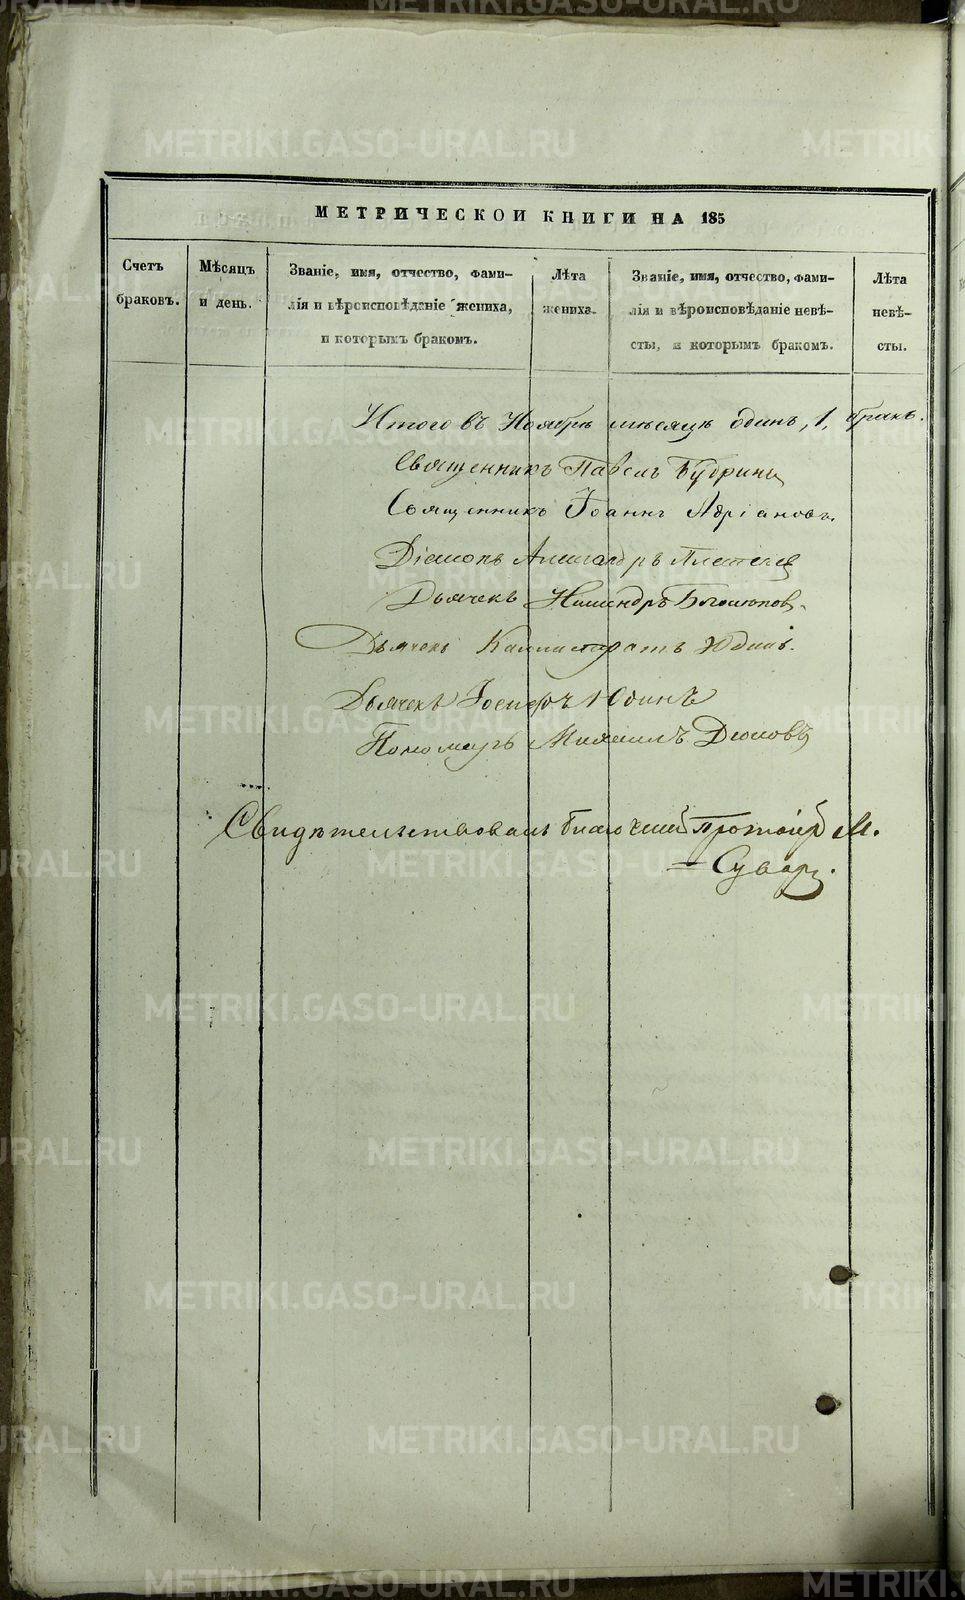 МЕТРИЧЕСКОИ КНИГИ НА 185
Счетъ
браковъ.
Мѣсяцъ
и день.
Званіе, имя, отчество, фами-
лія и вѣроисповѣданіе жениха,
и которымъ бракомъ.
Лѣта
жениха.
Званіе, имя, отчество, фами-
лія и вѣроисповѣданіе невѣ-
сты, и которымъ бракомъ.
Лѣта
невѣ-
сты.
Итого въ Ноябрѣ мѣсяцѣ одинъ, 1, бракъ.
Священникъ Павелъ Будринъ
Священникъ Іоаннъ Адріановъ.
Діаконъ Александръ
Дьячекъ
Дьячекъ Каллистратъ Юдинъ.
Дьячекъ Іосифъ Юдинъ
Пономарь Михаилъ
Свидѣтельствовалъ Благочинный Протоіерей М.
METRIKI.GASO-URAL.RU